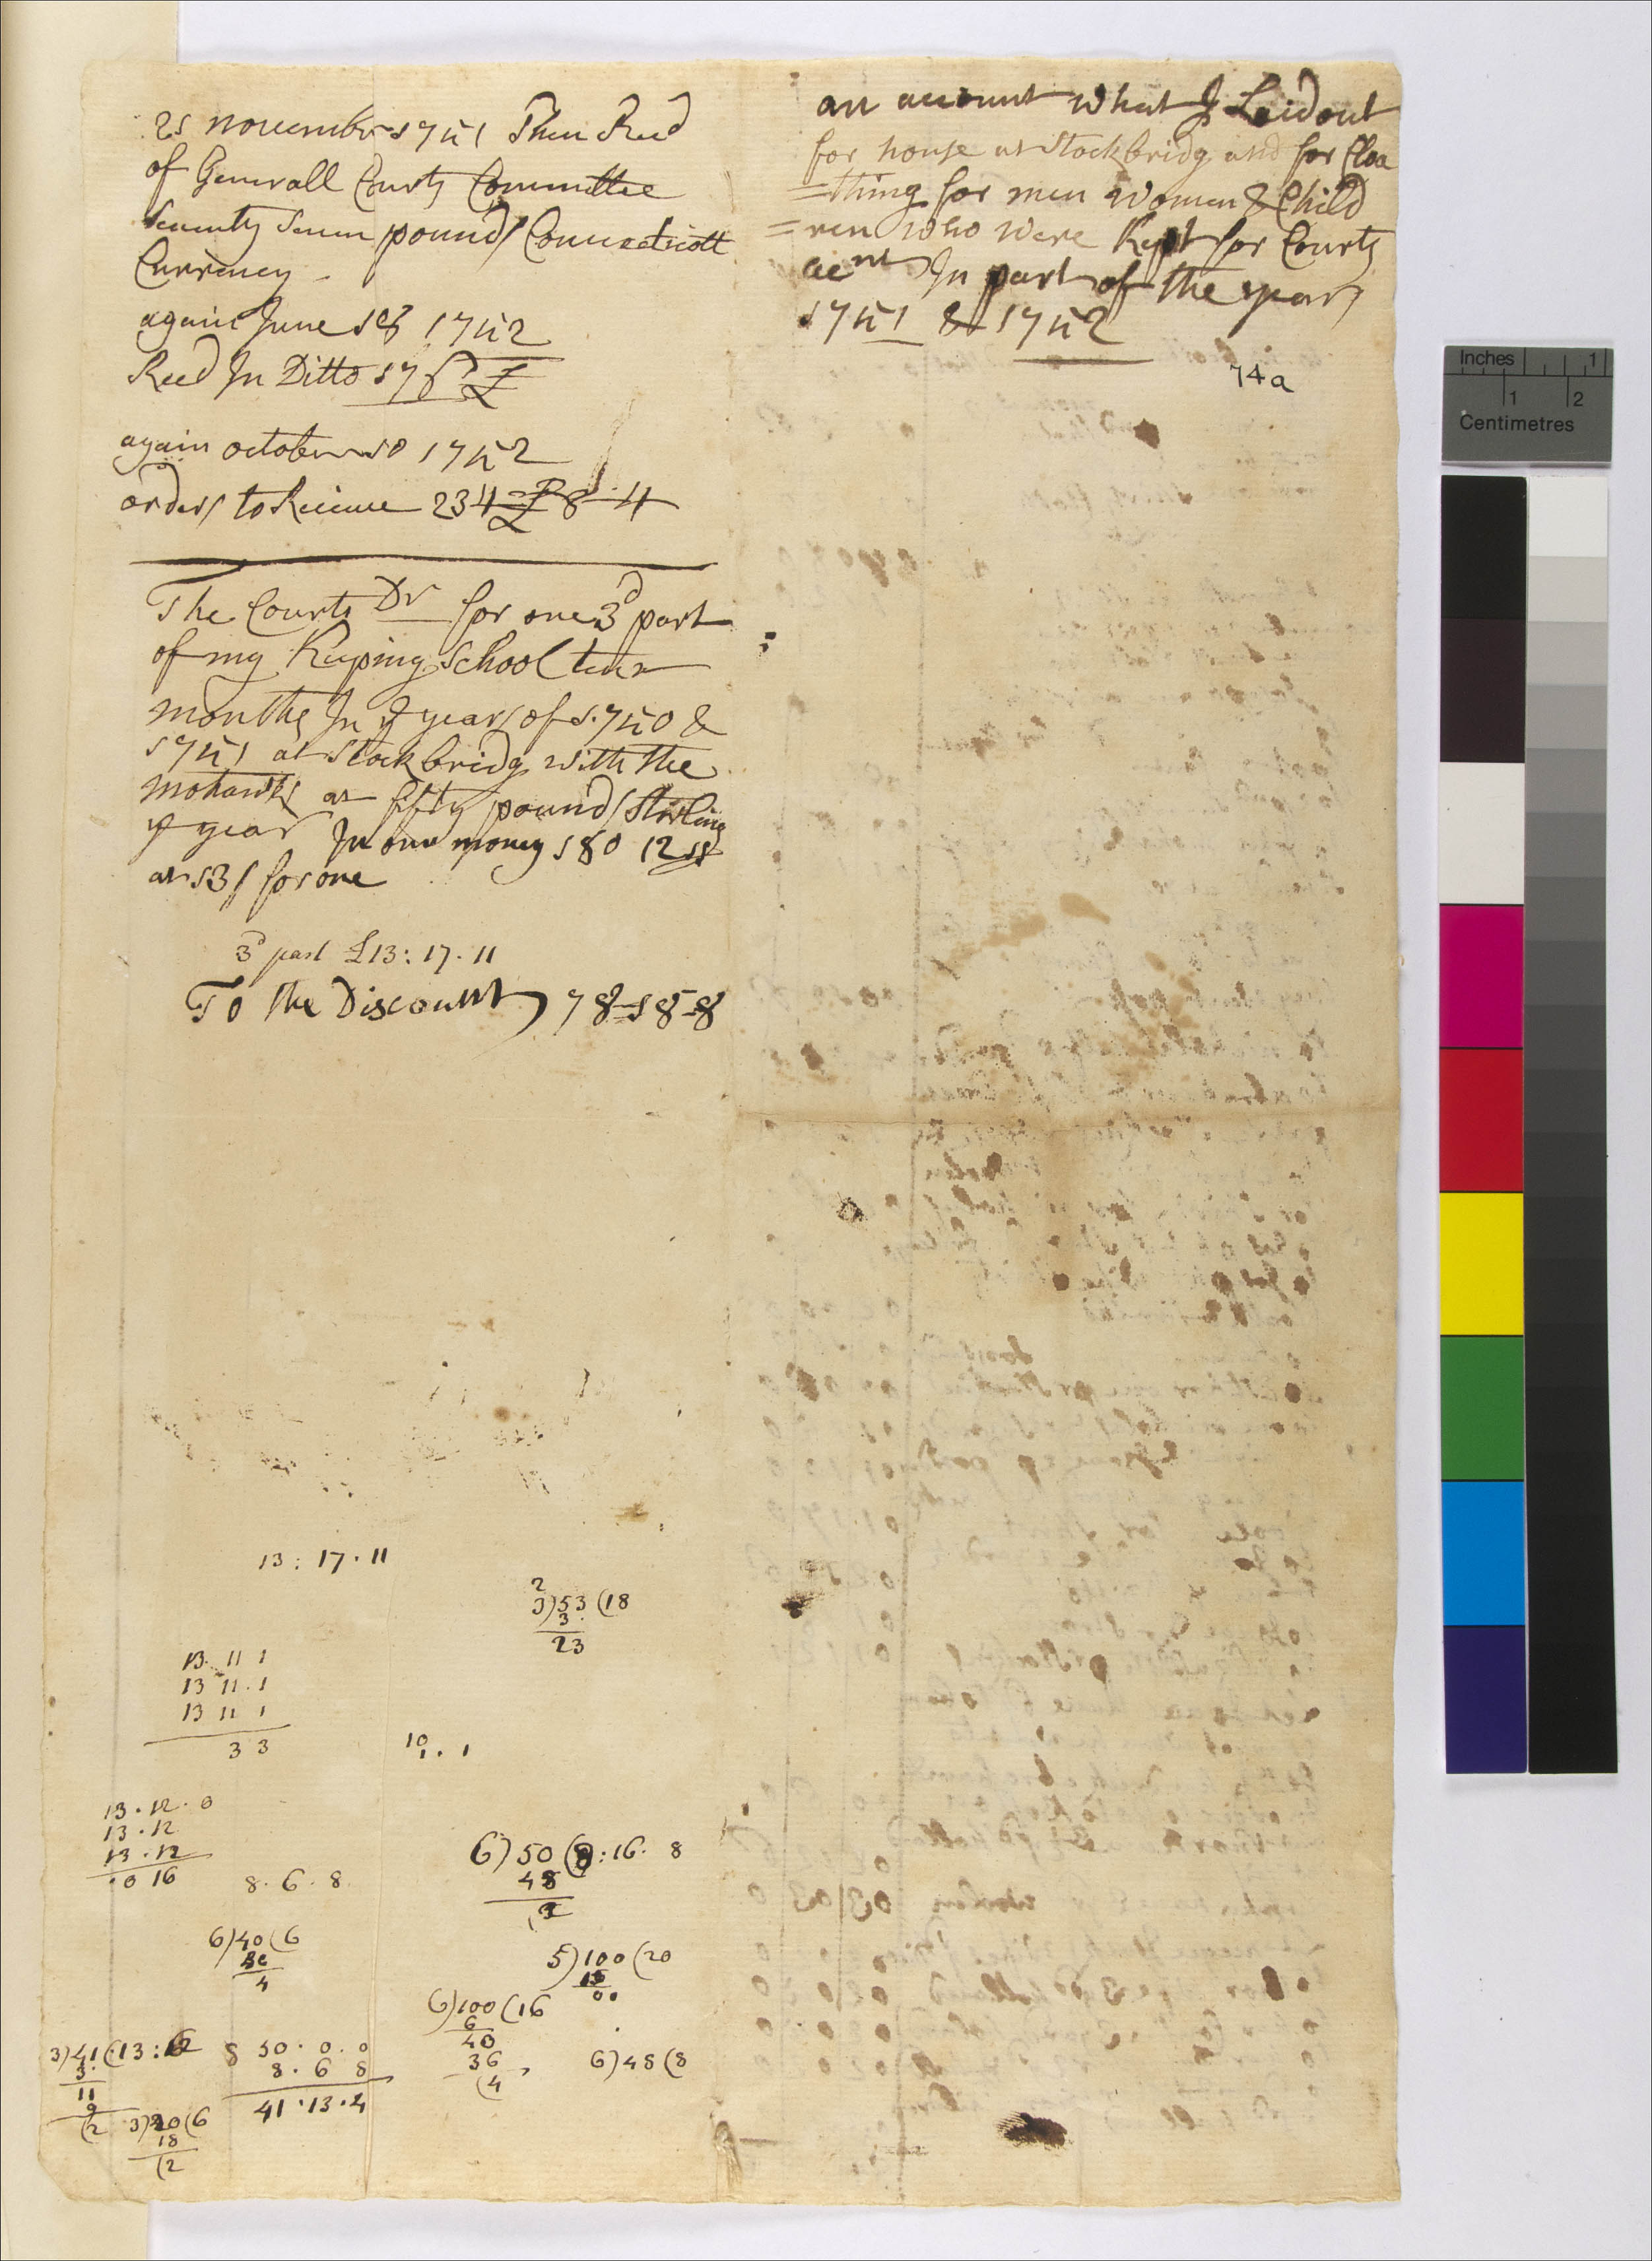 21 november 1751 Then Recd
of Generall Courts Committee
Seventy Seven pounds Connecticott
Currency
again June 1752
Recd In Ditto 17
again october 10 1752
orders to Receiue 234£ 8 4
The Courts Dr for one 3d part
of my Keeping School
months In ye years of 1750 &
1751 at Stockbridg with the
mohawks at fifty pounds Sterling
year In our money 180 12
at 13/ for one
3d part £13: 17. 11
To the Discount 78-18-8
13: 17. 11
2
3)53(18
3
23
13 11 1
13 11. 1
13 11 1
3 3
10
1. 1
13. 12. 0
13. 12
13. 12
0 16
8. 6. 8
6)50(8:16. 8
48
6)40(6
4
5)100(20
00
6)100(16
6
40
36
(4
6)48(8
3)41(13:
3
11
9
(2
50. 0. 0
8. 6 8
41. 13. 4
3)20(6
18
(2
an account what I Leid out
for house at Stockbridg and for Cloa
=thing for men women & Child
=ren who were Kept for Courts
acnt In part of the years
1751 & 1752
74a
Inches 1
1 2
Centimetres